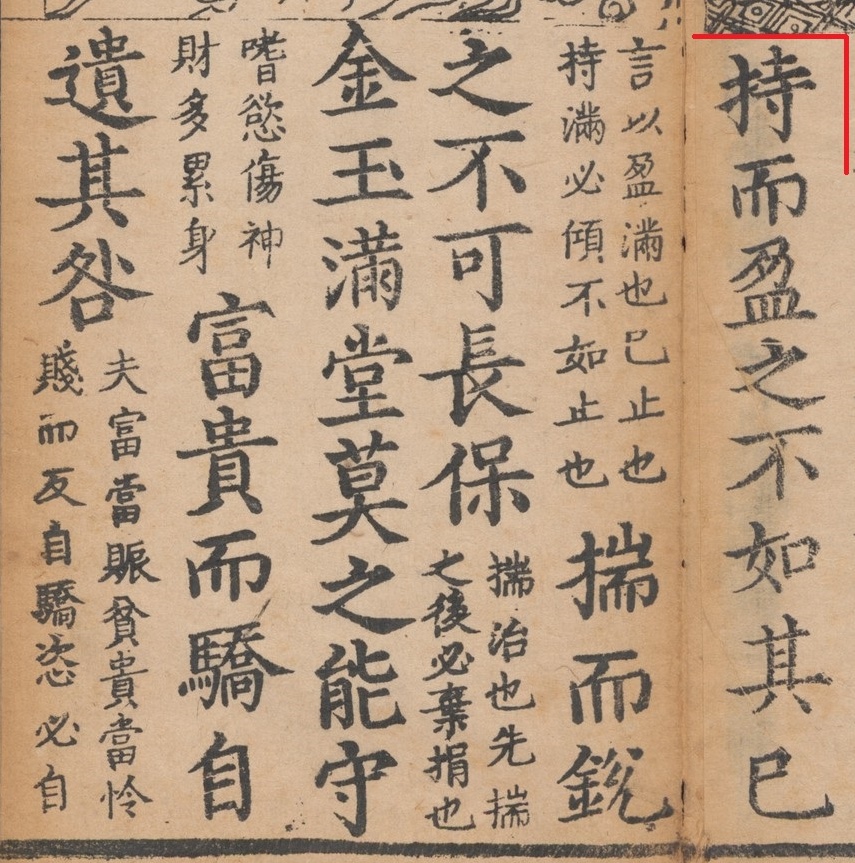 持而盈之不如其已
言以盈滿也已止也
持滿必傾不如止也
揣而銳
之不可長保
揣治也先揣
之後必棄捐也
金玉滿堂莫之能守
嗜慾傷神
財多累身
富貴而驕自
遺其咎
夫富當賑貧貴當怜
賤而反自驕恣必自